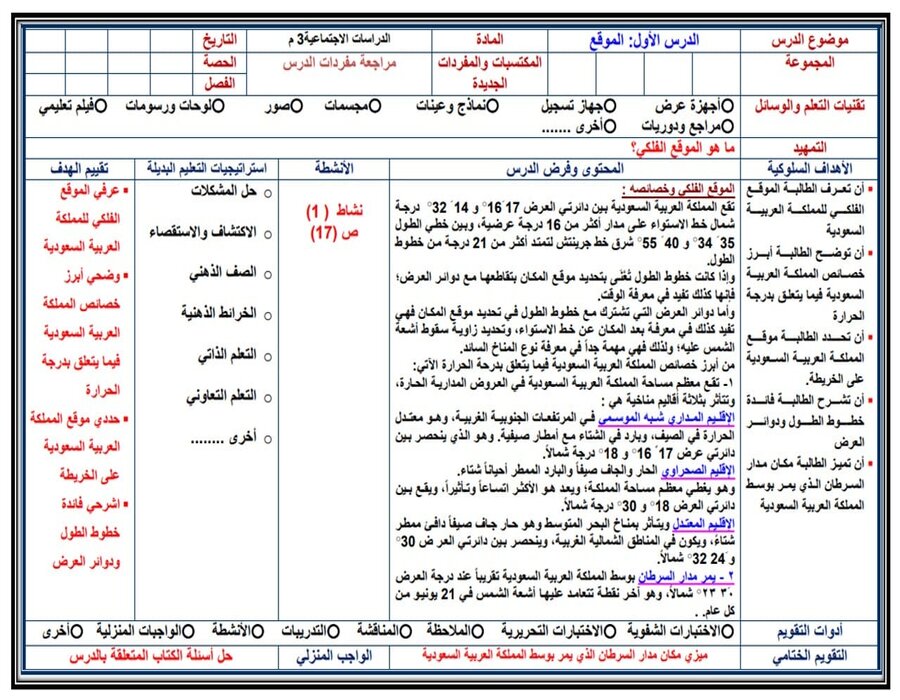 موضوع الدرس
الدرس الأول: الموقع
المادة
الدراسات الاجتماعية3 م
التاريخ
المجموعة
المكتسبات والمفردات
الجديدة
مراجعة مفردات الدرس
الحصة
الفصل
تقنيات التعلم والوسائل
Oأجهزة عرض Oجهاز تسجيل Oنماذج وعينات Oمجسمات Oصور Oلوحات ورسومات Oفيلم تعليمي
Oمراجع ودوريات Oأخرى .......
التمهيد
ما هو الموقع الفلكي؟
الأهداف السلوكية
المحتوى وفرض الدرس
الأنشطة
استراتيجيات التعليم البديلة
تقييم الهدف
▪ أن تعرف الطالبة الموقع
الفلكي للمملكة العربية
السعودية
▪ أن توضح الطالبة أبرز
خصائص المملكة العربية
السعودية فيما يتعلق بدرجة
الحرارة
▪ أن تحدد الطالبة موقع
المملكة العربية السعودية
على الخريطة.
▪ أن تشرح الطالبة فائدة
خطوط الطول ودوائر
العرض
▪ أن تميز الطالبة مكان مدار
السرطان الذي يمر بوسط
المملكة العربية السعودية
الموقع الفلكي وخصائصه :
تقع المملكة العربية السعودية بين دائرتي العرض 17َ 16° و 14َ 32° درجة
شمال خط الاستواء على مدار أكثر من 16 درجة عرضية، وبين خطي الطول
35َ 34° و 40َ 55° شرق خط جرينتش لتمتد أكثر من 21 درجة من خطوط
الطول.
وإذا كانت خطوط الطول تُعْنَى بتحديد موقع المكان بتقاطعها مع دوائر العرض؛
فإنها كذلك تفيد في معرفة الوقت.
وأما دوائر العرض التي تشترك مع خطوط الطول في تحديد موقع المكان فهي
تفيد كذلك في معرفة بعد المكان عن خط الاستواء، وتحديد زاوية سقوط أشعة
الشمس عليه؛ ولذلك فهي مهمة جداً في معرفة نوع المناخ السائد.
من أبرز خصائص المملكة العربية السعودية فيما يتعلق بدرحة الحرارة الآتي:
١- تقع معظم مساحة المملكة العربية السعودية في العروض المدارية الحارة،
وتتأثر بثلاثة أقاليم مناخية هي :
الإقليم المداري شبه الموسمي في المرتفعات الجنوبية الغربية، وهو معتدل
الحرارة في الصيف، وبارد في الشتاء مع أمطار صيفية. وهو الذي ينحصر بين
دائرتي عرض 17َ 16° و 18° درجة شمالاً.
الإقليم الصحراوي الحار والجاف صيفاً والبارد الممطر أحياناً شتاء.
وهو يغطي معظم مساحة المملكة؛ ويعد هو الأكثر اتساعاً وتأثيراً، ويقع بين
دائرتي العرض 18° و 30° درجة شمالاً.
الإقليم المعتدل ويتأثر بمناخ البحر المتوسط وهو حار جاف صيفاً دافئ ممطر
شتاءً، ويكون في المناطق الشمالية الغربية، وينحصر بين دائرتي العر ض 30°
و 24َ 32° شمالاً.
٢ - يمر مدار السرطان بوسط المملكة العربية السعودية تقريباً عند درجة العرض
٣٠َ ٢٣° شمالاً، وهو أخر نقطة تتعامد عليها أشعة الشمس في 21 يونيو من
كل عام. .
نشاط ( 1 )
ص (17)
○ حل المشكلات
○ الاكتشاف والاستقصاء
○ الصف الذهني
○ الخرائط الذهنية
○ التعلم الذاتي
○ التعلم التعاوني
○ أخرى ........
▪ عرفي الموقع
الفلكي للمملكة
العربية السعودية
▪ وضحي أبرز
خصائص المملكة
العربية السعودية
فيما يتعلق بدرجة
الحرارة
▪ حددي موقع المملكة
العربية السعودية
على الخريطة
▪ اشرحي فائدة
خطوط الطول
ودوائر العرض
أدوات التقويم
Oالاختبارات الشفوية Oالاختبارات التحريرية Oالملاحظة Oالمناقشة Oالتدريبات Oالأنشطة Oالواجبات المنزلية Oأخرى
التقويم الختامي
ميزي مكان مدار السرطان الذي يمر بوسط المملكة العربية السعودية
الواجب المنزلي
حل أسئلة الكتاب المتعلقة بالدرس